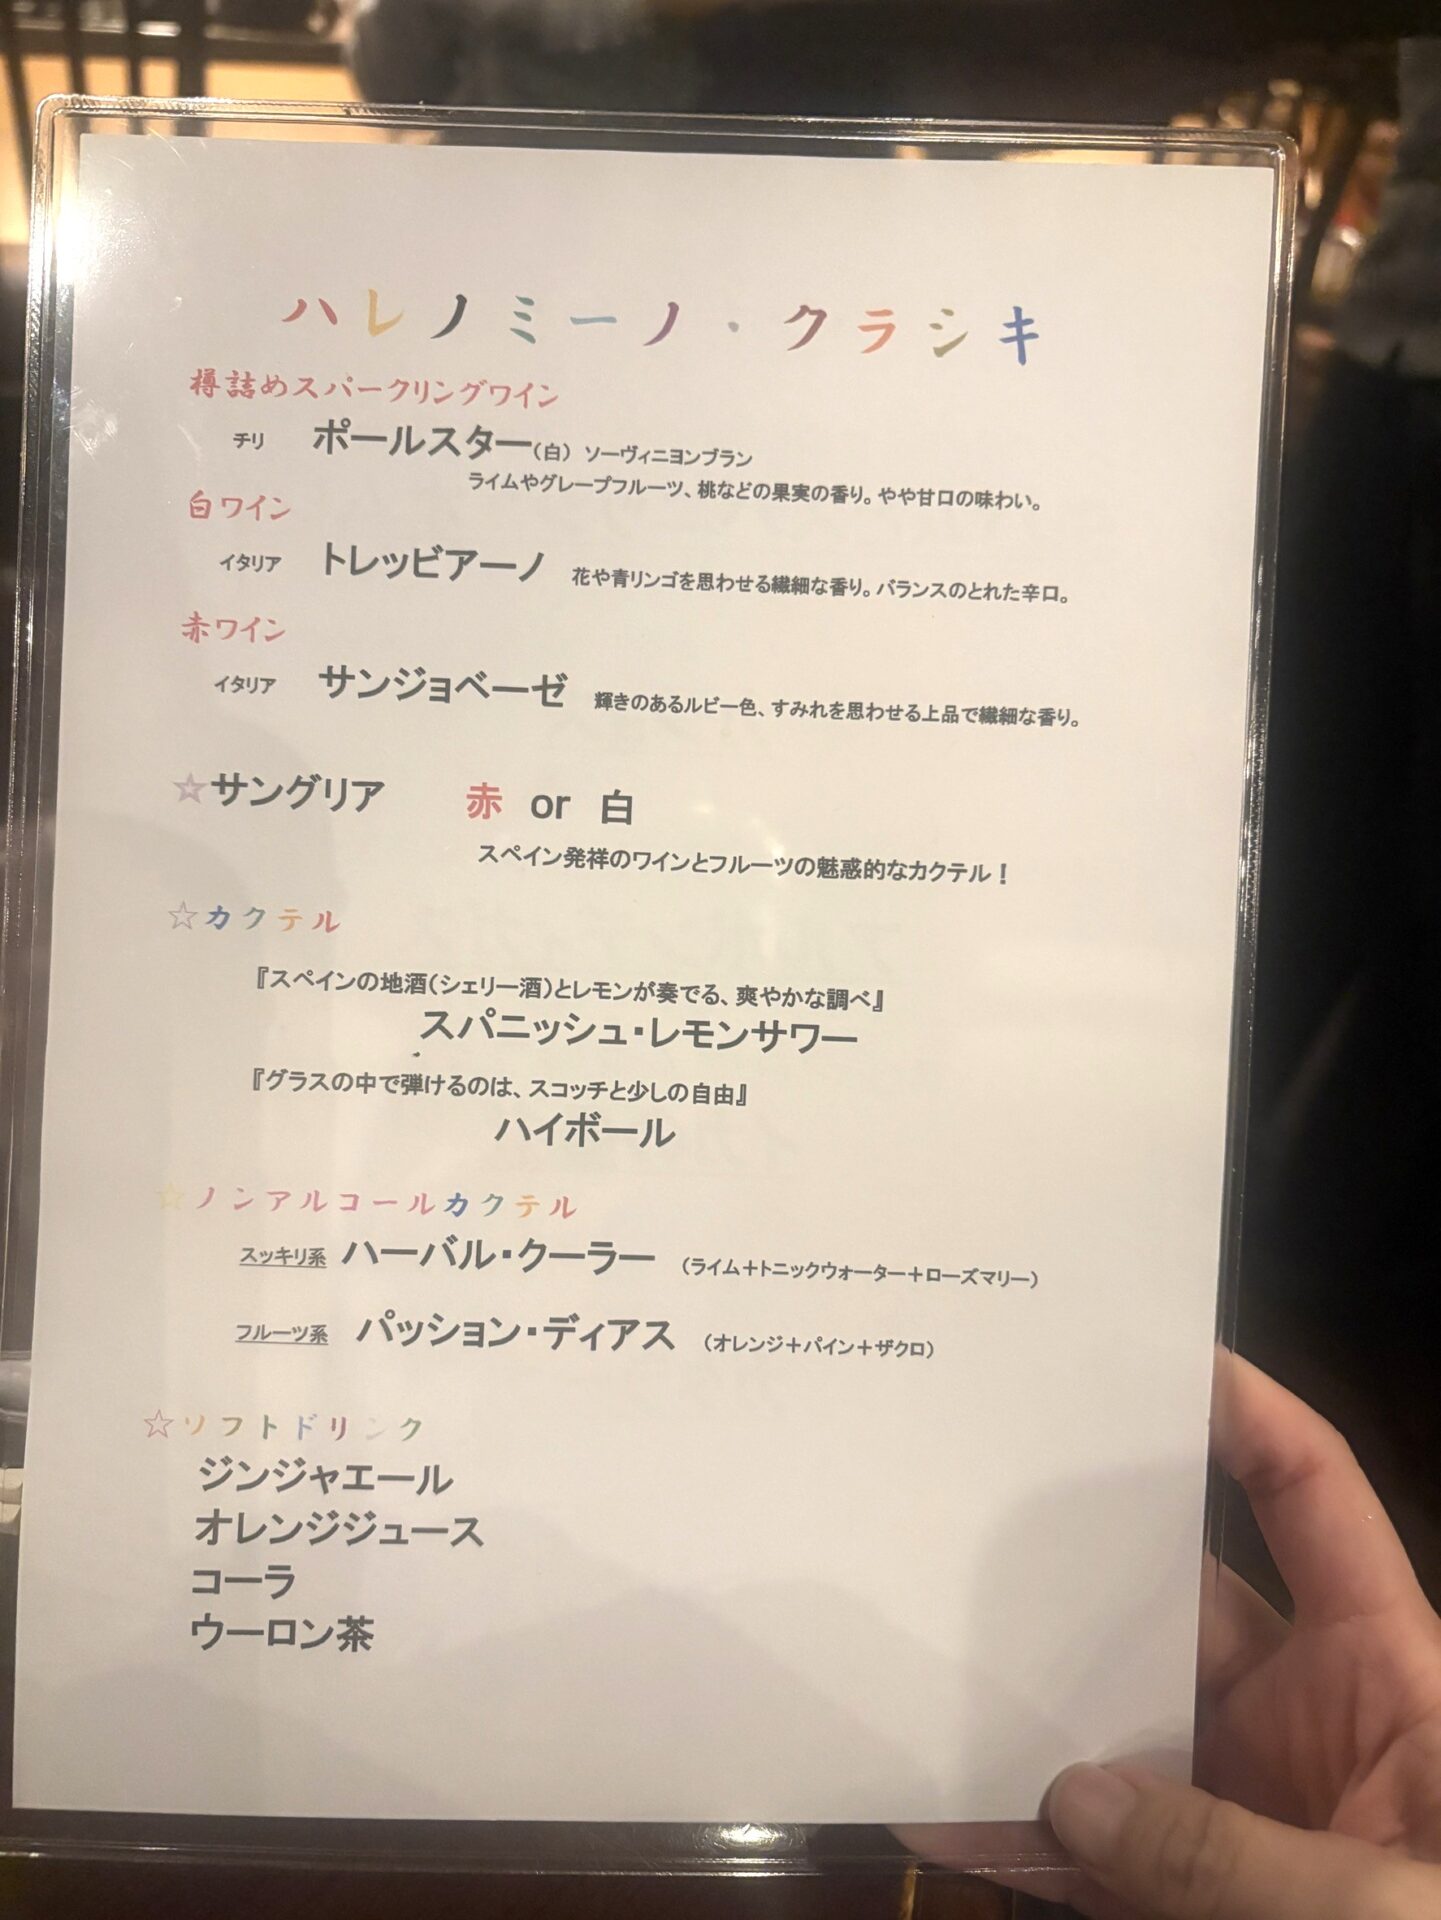 ハレノミーノ・クラシキ
樽詰めスパークリングワイン
チリ ポールスター（白） ソーヴィニヨンブラン
ライムやグレープフルーツ、桃などの果実の香り。やや甘口の味わい。
白ワイン
イタリア トレッビアーノ 花や青リンゴを思わせる繊細な香り。バランスのとれた辛口。
赤ワイン
イタリア サンジョベーゼ 輝きのあるルビー色、すみれを思わせる上品で繊細な香り。
☆サングリア 赤 or 白
スペイン発祥のワインとフルーツの魅惑的なカクテル！
☆カクテル
『スペインの地酒（シェリー酒）とレモンが奏でる、爽やかな調べ』
スパニッシュ・レモンサワー
『グラスの中で弾けるのは、スコッチと少しの自由』
ハイボール
☆ノンアルコールカクテル
スッキリ系 ハーバル・クーラー （ライム＋トニックウォーター＋ローズマリー）
フルーツ系 パッション・ディアス （オレンジ＋パイン＋ザクロ）
☆ソフトドリンク
ジンジャエール
オレンジジュース
コーラ
ウーロン茶